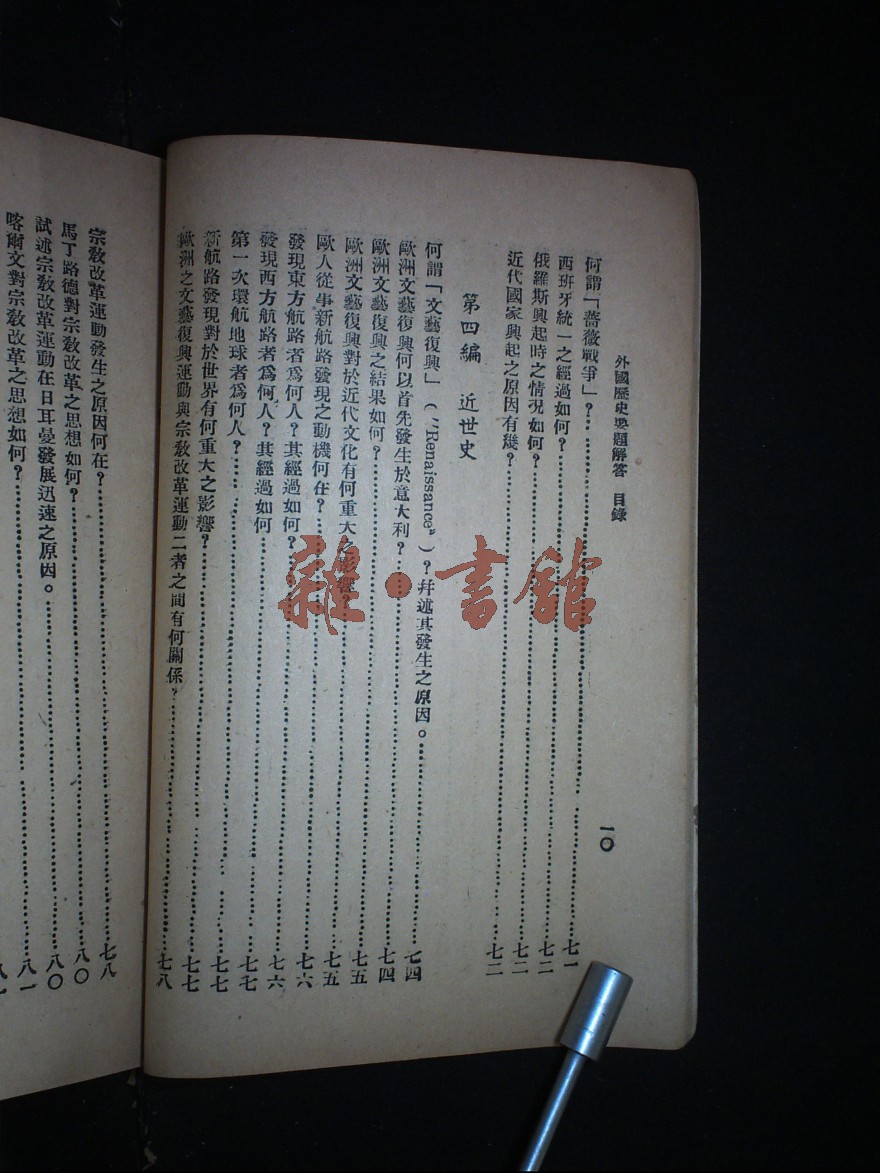 外國歷史要題解答 目錄
一〇
何謂「薔薇戰爭」?……七一
西班牙統一之經過如何?……七二
俄羅斯興起時之情况如何?……七二
近代國家興起之原因有幾?……七二
第四編 近世史
何謂「文藝復興」("Renaissance")?幷述其發生之原因。……七四
歐洲文藝復興何以首先發生於意大利?……七四
歐洲文藝復興之結果如何?……七五
歐洲文藝復興對於近代文化有何重大之影響?……七五
歐人從事新航路發現之動機何在?……七六
發現東方航路者爲何人?其經過如何?……七六
發現西方航路者爲何人?其經過如何……七七
第一次環航地球者爲何人?……七七
新航路發現對於世界有何重大之影響?……七七
歐洲之文藝復興運動與宗敎改革運動二者之間有何關係?……七八
宗敎改革運動發生之原因何在?……七八
馬丁路德對宗敎改革之思想如何?……八〇
試述宗敎改革運動在日耳曼發展迅速之原因。……八〇
喀爾文對宗敎改革之思想如何?……八一
雜·書館